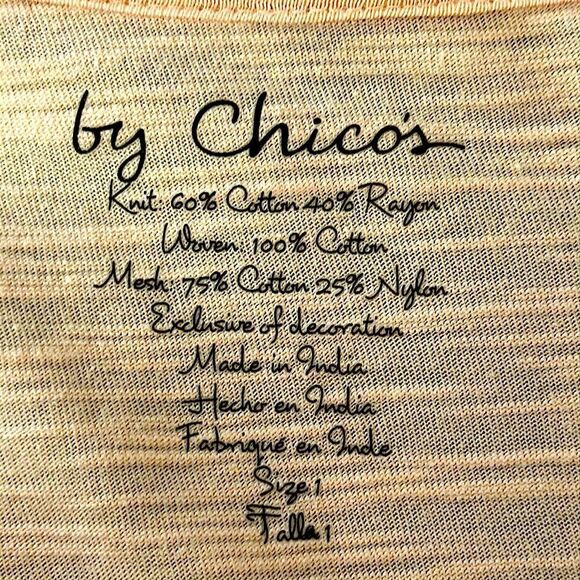 by Chico's
Knit: 60% Cotton 40% Rayon
Woven: 100% Cotton
Mesh: 75% Cotton 25% Nylon
Exclusive of decoration
Made in India
Hecho en India
Fabriqué en Inde
Size 1
Talla 1